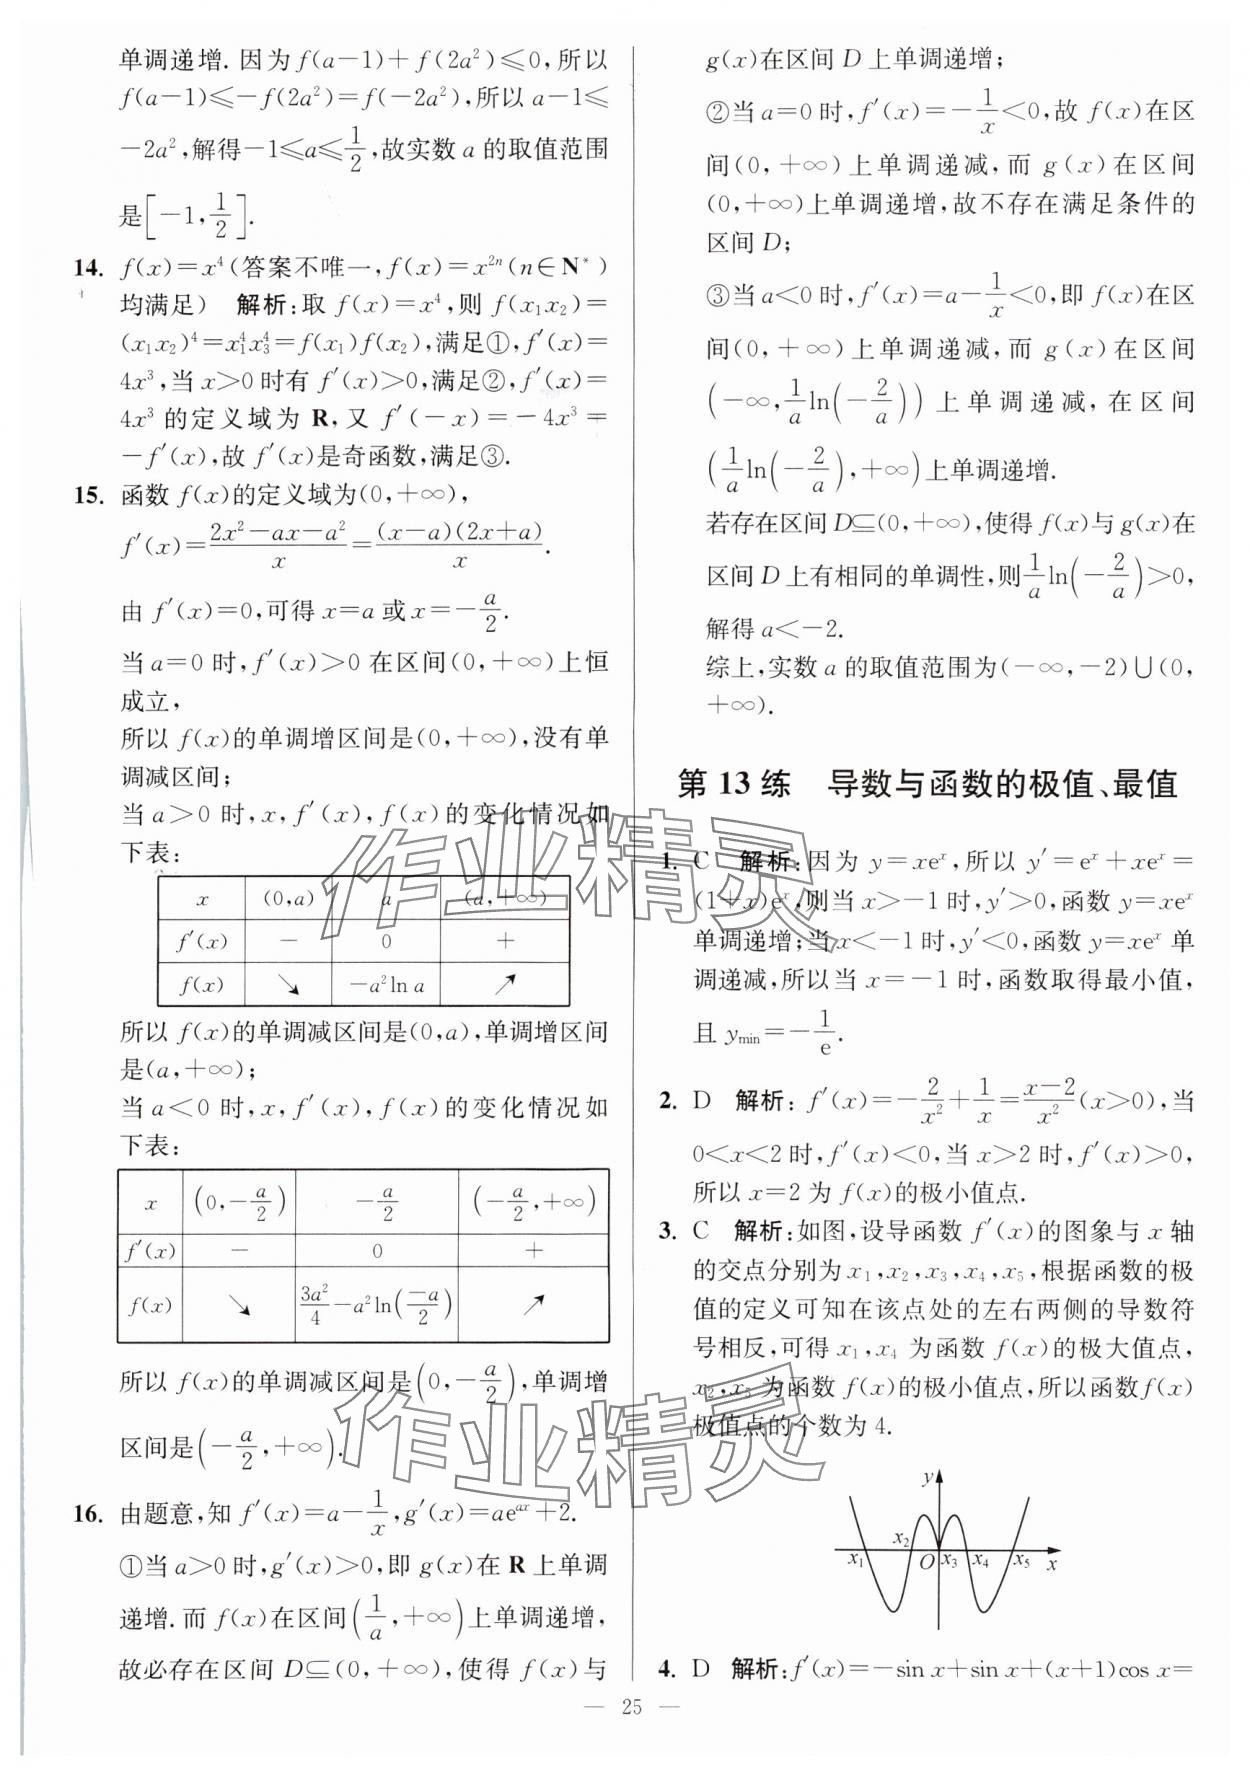 单调递增. 因为 f(a−1)+f(2a²)≤0,所以
f(a−1)≤−f(2a²)=f(−2a²),所以 a−1≤
−2a²,解得−1≤a≤1/2,故实数 a 的取值范围
是[−1,1/2].
14. f(x)=x⁴(答案不唯一,f(x)=x²ⁿ(n∈N*)
均满足) 解析:取 f(x)=x⁴,则 f(x₁x₂)=
(x₁x₂)⁴=x₁⁴x₃⁴=f(x₁)f(x₂),满足①,f′(x)=
4x³,当 x>0 时有 f′(x)>0,满足②,f′(x)=
4x³ 的定义域为 R,又 f′(−x)=−4x³=
−f′(x),故 f′(x)是奇函数,满足③.
15. 函数 f(x)的定义域为(0,+∞),
f′(x)=(2x²−ax−a²)/x=(x−a)(2x+a)/x.
由 f′(x)=0,可得 x=a 或 x=−a/2.
当 a=0 时,f′(x)>0 在区间(0,+∞)上恒
成立,
所以 f(x)的单调增区间是(0,+∞),没有单
调减区间;
当 a>0 时,x,f′(x),f(x)的变化情况如
下表:
x (0,a) a (a,+∞)
f′(x) − 0 +
f(x) ↘ −a²ln a ↗
所以 f(x)的单调减区间是(0,a),单调增区间
是(a,+∞);
当 a<0 时,x,f′(x),f(x)的变化情况如
下表:
x (0,−a/2) −a/2 (−a/2,+∞)
f′(x) − 0 +
f(x) ↘ 3a²/4−a²ln(−a/2) ↗
所以 f(x)的单调减区间是(0,−a/2),单调增
区间是(−a/2,+∞).
16. 由题意,知 f′(x)=a−1/x,g′(x)=aeᵃˣ+2.
①当 a>0 时,g′(x)>0,即 g(x)在 R 上单调
递增.而 f(x)在区间(1/a,+∞)上单调递增,
故必存在区间 D⊆(0,+∞),使得 f(x)与
g(x)在区间 D 上单调递增;
②当 a=0 时,f′(x)=−1/x<0,故 f(x)在区
间(0,+∞)上单调递减,而 g(x)在区间
(0,+∞)上单调递增,故不存在满足条件的
区间 D;
③当 a<0 时,f′(x)=a−1/x<0,即 f(x)在区
间(0,+∞)上单调递减,而 g(x)在区间
(−∞,1/a ln(−2/a))上单调递减,在区间
(1/a ln(−2/a),+∞)上单调递增.
若存在区间 D⊆(0,+∞),使得 f(x)与 g(x)在
区间 D 上有相同的单调性,则1/a ln(−2/a)>0,
解得 a<−2.
综上,实数 a 的取值范围为(−∞,−2)∪(0,
+∞).
第 13 练 导数与函数的极值、最值
1. C 解析:因为 y=xeˣ,所以 y′=eˣ+xeˣ=
(1+x)eˣ,则当 x>−1 时,y′>0,函数 y=xeˣ
单调递增;当 x<−1 时,y′<0,函数 y=xeˣ 单
调递减,所以当 x=−1 时,函数取得最小值,
且 yₘᵢₙ=−1/e.
2. D 解析: f′(x)=−2/x²+1/x=(x−2)/x²(x>0),当
0<x<2 时,f′(x)<0,当 x>2 时,f′(x)>0,
所以 x=2 为 f(x)的极小值点.
3. C 解析:如图,设导函数 f′(x)的图象与 x 轴
的交点分别为 x₁,x₂,x₃,x₄,x₅,根据函数的极
值的定义可知在该点处的左右两侧的导数符
号相反,可得 x₁,x₄ 为函数 f(x)的极大值点,
x₂,x₅ 为函数 f(x)的极小值点,所以函数f(x)
极值点的个数为 4.
y
x₁ x₂ O x₃ x₄ x₅ x
4. D 解析:f′(x)=−sin x+sin x+(x+1)cos x=
— 25 —
作业精灵
作业精灵